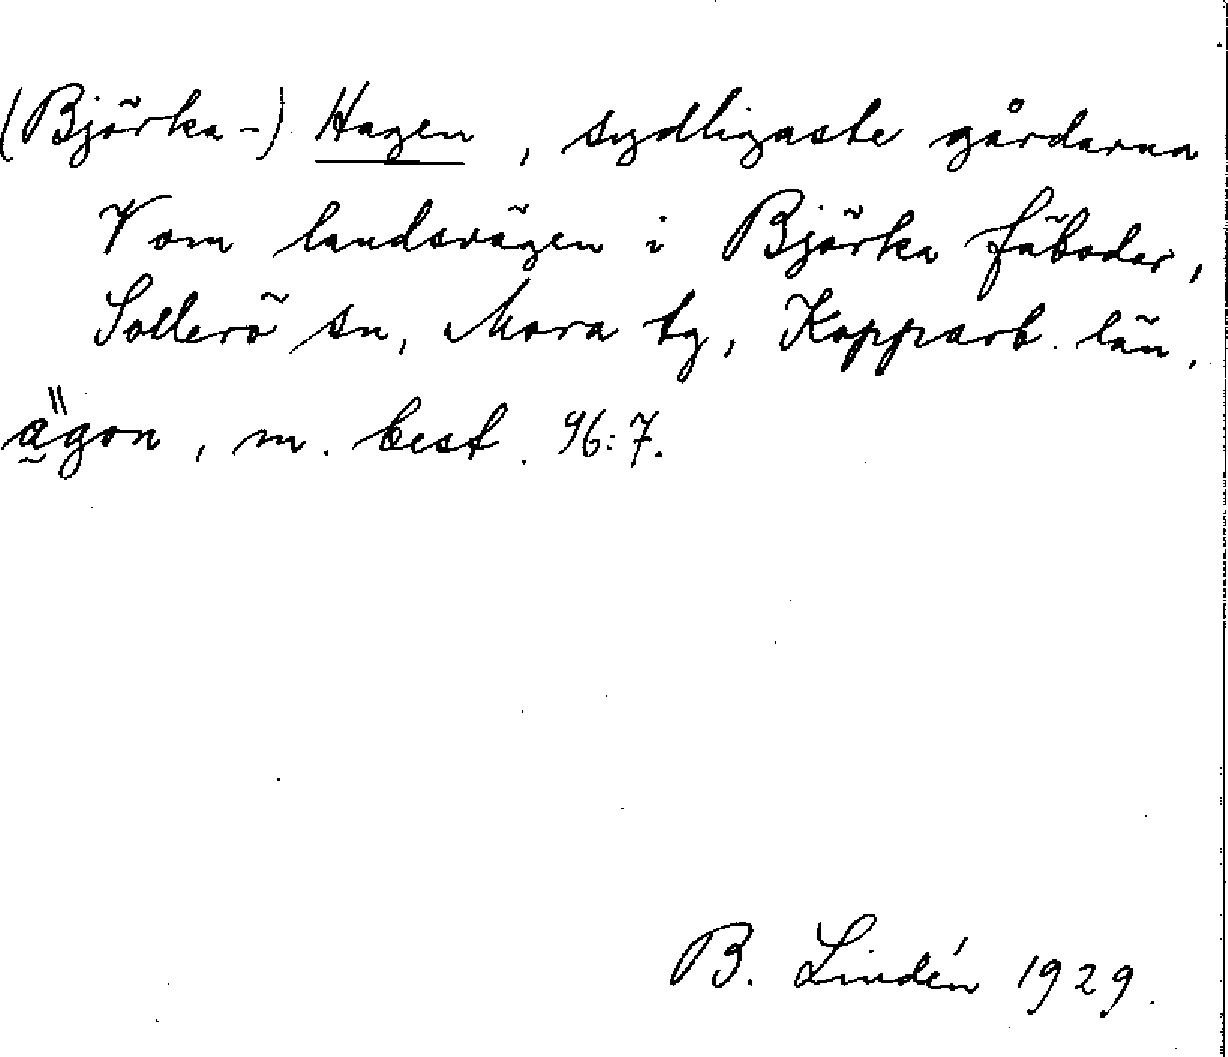 (Björka-) Hagen, sydligaste gårdarna
V om landsvägen i Björka fäboder,
Sollerö sn, Mora tg, Kopparb. län.
a̰̎gon, m. best. 96:7.
B. Lindén 1929.